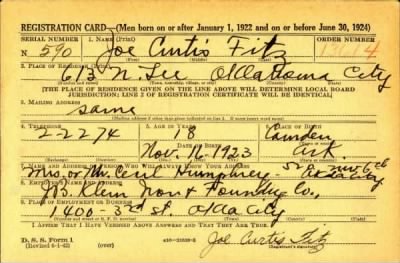 REGISTRATION CARD—(Men born on or after January 1, 1922 and on or before June 30, 1924)
SERIAL NUMBER 1. NAME (Print) ORDER NUMBER
N 590 Joe Curtis Fitz
2. PLACE OF RESIDENCE (Print)
613 N. Lee Oklahoma City
[THE PLACE OF RESIDENCE GIVEN ON THE LINE ABOVE WILL DETERMINE LOCAL BOARD
JURISDICTION; LINE 2 OF REGISTRATION CERTIFICATE WILL BE IDENTICAL]
3. MAILING ADDRESS
same
4. TELEPHONE 5. AGE IN YEARS 6. PLACE OF BIRTH
22274 18 Camden
DATE OF BIRTH
Nov. 1923 Ark
7. NAME AND ADDRESS OF PERSON WHO WILL ALWAYS KNOW YOUR ADDRESS
Mrs. or Mr. Cecil Humphrey
8. EMPLOYER'S NAME AND ADDRESS
J.B. Klein Iron & Foundry Co.,
9. PLACE OF EMPLOYMENT OR BUSINESS
1400-3rd st. Okla City
I AFFIRM THAT I HAVE VERIFIED ABOVE ANSWERS AND THAT THEY ARE TRUE.
D. S. S. Form 1
(over) Joe Curtis Fitz